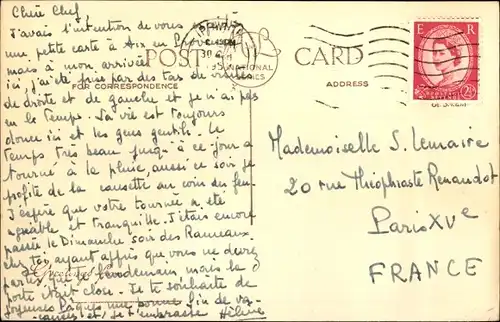 Chère Chef
J'avais l'intention de vous
une petite carte à Aix en Provence
mais à mon arrivée
ici, j'ai été prise par des tas de visites
de droite et de gauche et je n'ai pas
eu le temps. La vie est toujours
douce ici et les gens gentils. Le
temps très beau jusqu'à ce jour a
tourné à la pluie, aussi ce soir je
profite de la causette au coin du feu.
J'espère que votre tournée a été
agréable et tranquille. J'étais encore
passée le Dimanche soir des Rameaux
chez toi, ayant appris que vous ne
partiez que le lendemain mais la
porte était close. Je te souhaite de
joyeuses Pâques une bonne fin de va-
cances et je t'embrasse Hélène
POST CARD
FOR CORRESPONDENCE
ADDRESS
NATIONAL SERIES
E R
2½
Mademoiselle S. Lemaire
20 rue Théophraste Renaudot
Paris XVe
FRANCE